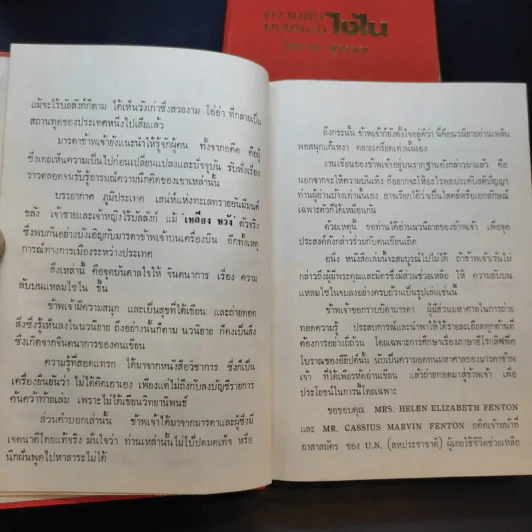 ความลับ
บนแหลมไซไน
แม้จะไร้บัลลังก์ก็ตาม ได้เห็นวังเก่าซึ่งสวยงาม โอ่อ่า ที่กลายเป็น
สถานทูตของประเทศหนึ่งไปเสียแล้ว
มารดาข้าพเจ้ายังแนะนำให้รู้จักผู้คน ทั้งจากอดีต คือผู้
ซึ่งเคยเห็นความเป็นไปก่อนเปลี่ยนแปลงและปัจจุบัน รับฟังเรื่อง
ราวตลอดจนรับรู้อารมณ์ความนึกคิดของเขาเหล่านั้น
บรรยากาศ ภูมิประเทศ เสน่ห์แห่งทะเลทรายอันมีมนต์
ขลัง เจ้าชายและเจ้าหญิงไร้บัลลังก์ แม้ 'เหลือง หวัง' ตัวจริง
ซึ่งพบกันอย่างบังเอิญกับมารดาข้าพเจ้าบนเครื่องบิน อีกทั้งเหตุ
การณ์ทางการเมืองระหว่างประเทศ
สิ่งเหล่านี้ คือจุดบันดาลใจให้ จินตนาการ เรื่อง ความ
ลับบนแหลมไซไน ขึ้น
ข้าพเจ้ามีความสนุก และเป็นสุขที่ได้เขียน และถ่ายทอด
สิ่งซึ่งรู้เห็นลงในนวนิยาย ถึงอย่างนั้นก็ตาม นวนิยาย ก็คงเป็นสิ่ง
ซึ่งเกิดจากจินตนาการของคนเขียน
ความรู้ที่สอดแทรก ได้มาจากหนังสือวิชาการ ซึ่งก็เป็น
เครื่องยืนยันว่า ไม่ได้คิดเอาเอง เพียงแต่ไม่ถึงกับลงบัญชีรายการ
ค้นคว้าท้ายเล่ม เพราะไม่ได้เขียนวิทยานิพนธ์
ส่วนคำบอกเล่านั้น ข้าพเจ้าได้มาจากมารดาและผู้ซึ่งมี
เจตนาดีโดยแท้จริง มั่นใจว่า ท่านเหล่านั้นไม่ไปปดมดเท็จ หรือ
นึกฝันพูดไปหาสาระไม่ได้
ถึงกระนั้น ข้าพเจ้าก็ยังตั้งใจอยู่ดีว่า นี่คือนวนิยายอ่านเพลิน
พอสนุกแก้เหงา คลายเครียดเท่านั้นเอง
งานเขียนของข้าพเจ้าอยู่บนรากฐานดังกล่าวมาแล้ว คือ
นอกจากจะให้ความบันเทิง ก็อยากจะให้อะไรพอประดับสติปัญญา
ท่านผู้อ่านบ้างเท่านั้นเอง อาจเรียกได้ว่าเป็นสไตล์หรือเอกลักษณ์
เฉพาะตัวก็ได้เหมือนกัน
ด้วยเหตุนี้ ขอท่านได้อ่านนวนิยายของข้าพเจ้า เพื่อจุด
ประสงค์ดังกล่าวร่วมกับคนเขียนเถิด
อนึ่ง หนังสือเล่มนี้จะสมบูรณ์ไปไม่ได้ ถ้าข้าพเจ้าเว้นไม่
กล่าวถึงผู้มีพระคุณและมิตรซึ่งมีส่วนช่วยเหลือ ให้ ความลับบน
แหลมไซไนจบลงอย่างครบถ้วนเป็นรูปเล่มเช่นนี้
ข้าพเจ้าขอกราบบิดามารดา ผู้มีส่วนมหาศาลในการถ่าย
ทอดความรู้ ประสบการณ์และนำพาให้ได้รายละเอียดทุกด้านที่
ต้องการอย่างถี่ถ้วน โดยเฉพาะการศึกษาเรื่องภาษาฮีโรกลิฟฟิค
โบราณของอียิปต์นั้น นับเป็นความอดทนมหาศาลของมารดาข้าพ
เจ้า ที่ได้เพียรหัดอ่านเขียน แล้วถ่ายทอดมาสู่ข้าพเจ้า เพื่อ
ประโยชน์ในการนี้โดยเฉพาะ
ขอขอบคุณ MRS. HELEN ELIZABETH FENTON
และ MR. CASSIUS MARVIN FENTON อดีตเจ้าหน้าที่
อาสาสมัคร ของ U.N. (สหประชาชาติ) ผู้เคยใช้ชีวิตช่วยเหลือ